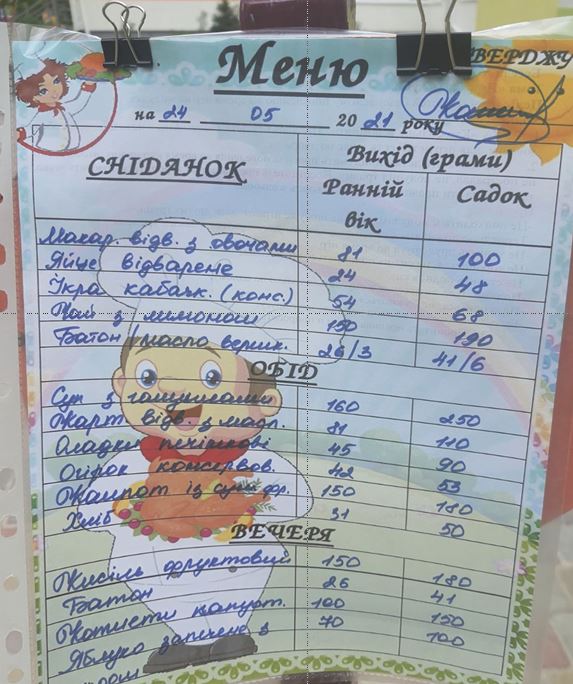 Меню
ВЕРДЖУ
на 24 05 20 21 року
СНІДАНОК
Вихід (грами)
Ранній вік
Садок
Макар. відв. з овочами 81 100
Яйце відварене 24 48
Ікра кабачк. (конс.) 54 68
Чай з лимоном 150 190
Батон / масло вершк. 26/3 41/6
ОБІД
Суп з галушками 160 250
Карт відв. з масл. 81 110
Оладки печінкові 45 90
Огірок консервов. 42 53
Компот із сух. фр. 150 180
Хліб 31 50
ВЕЧЕРЯ
Кисіль фруктовий 150 180
Батон 26 41
Котлети капуст. 100 150
Яблуко запечене з 70 100